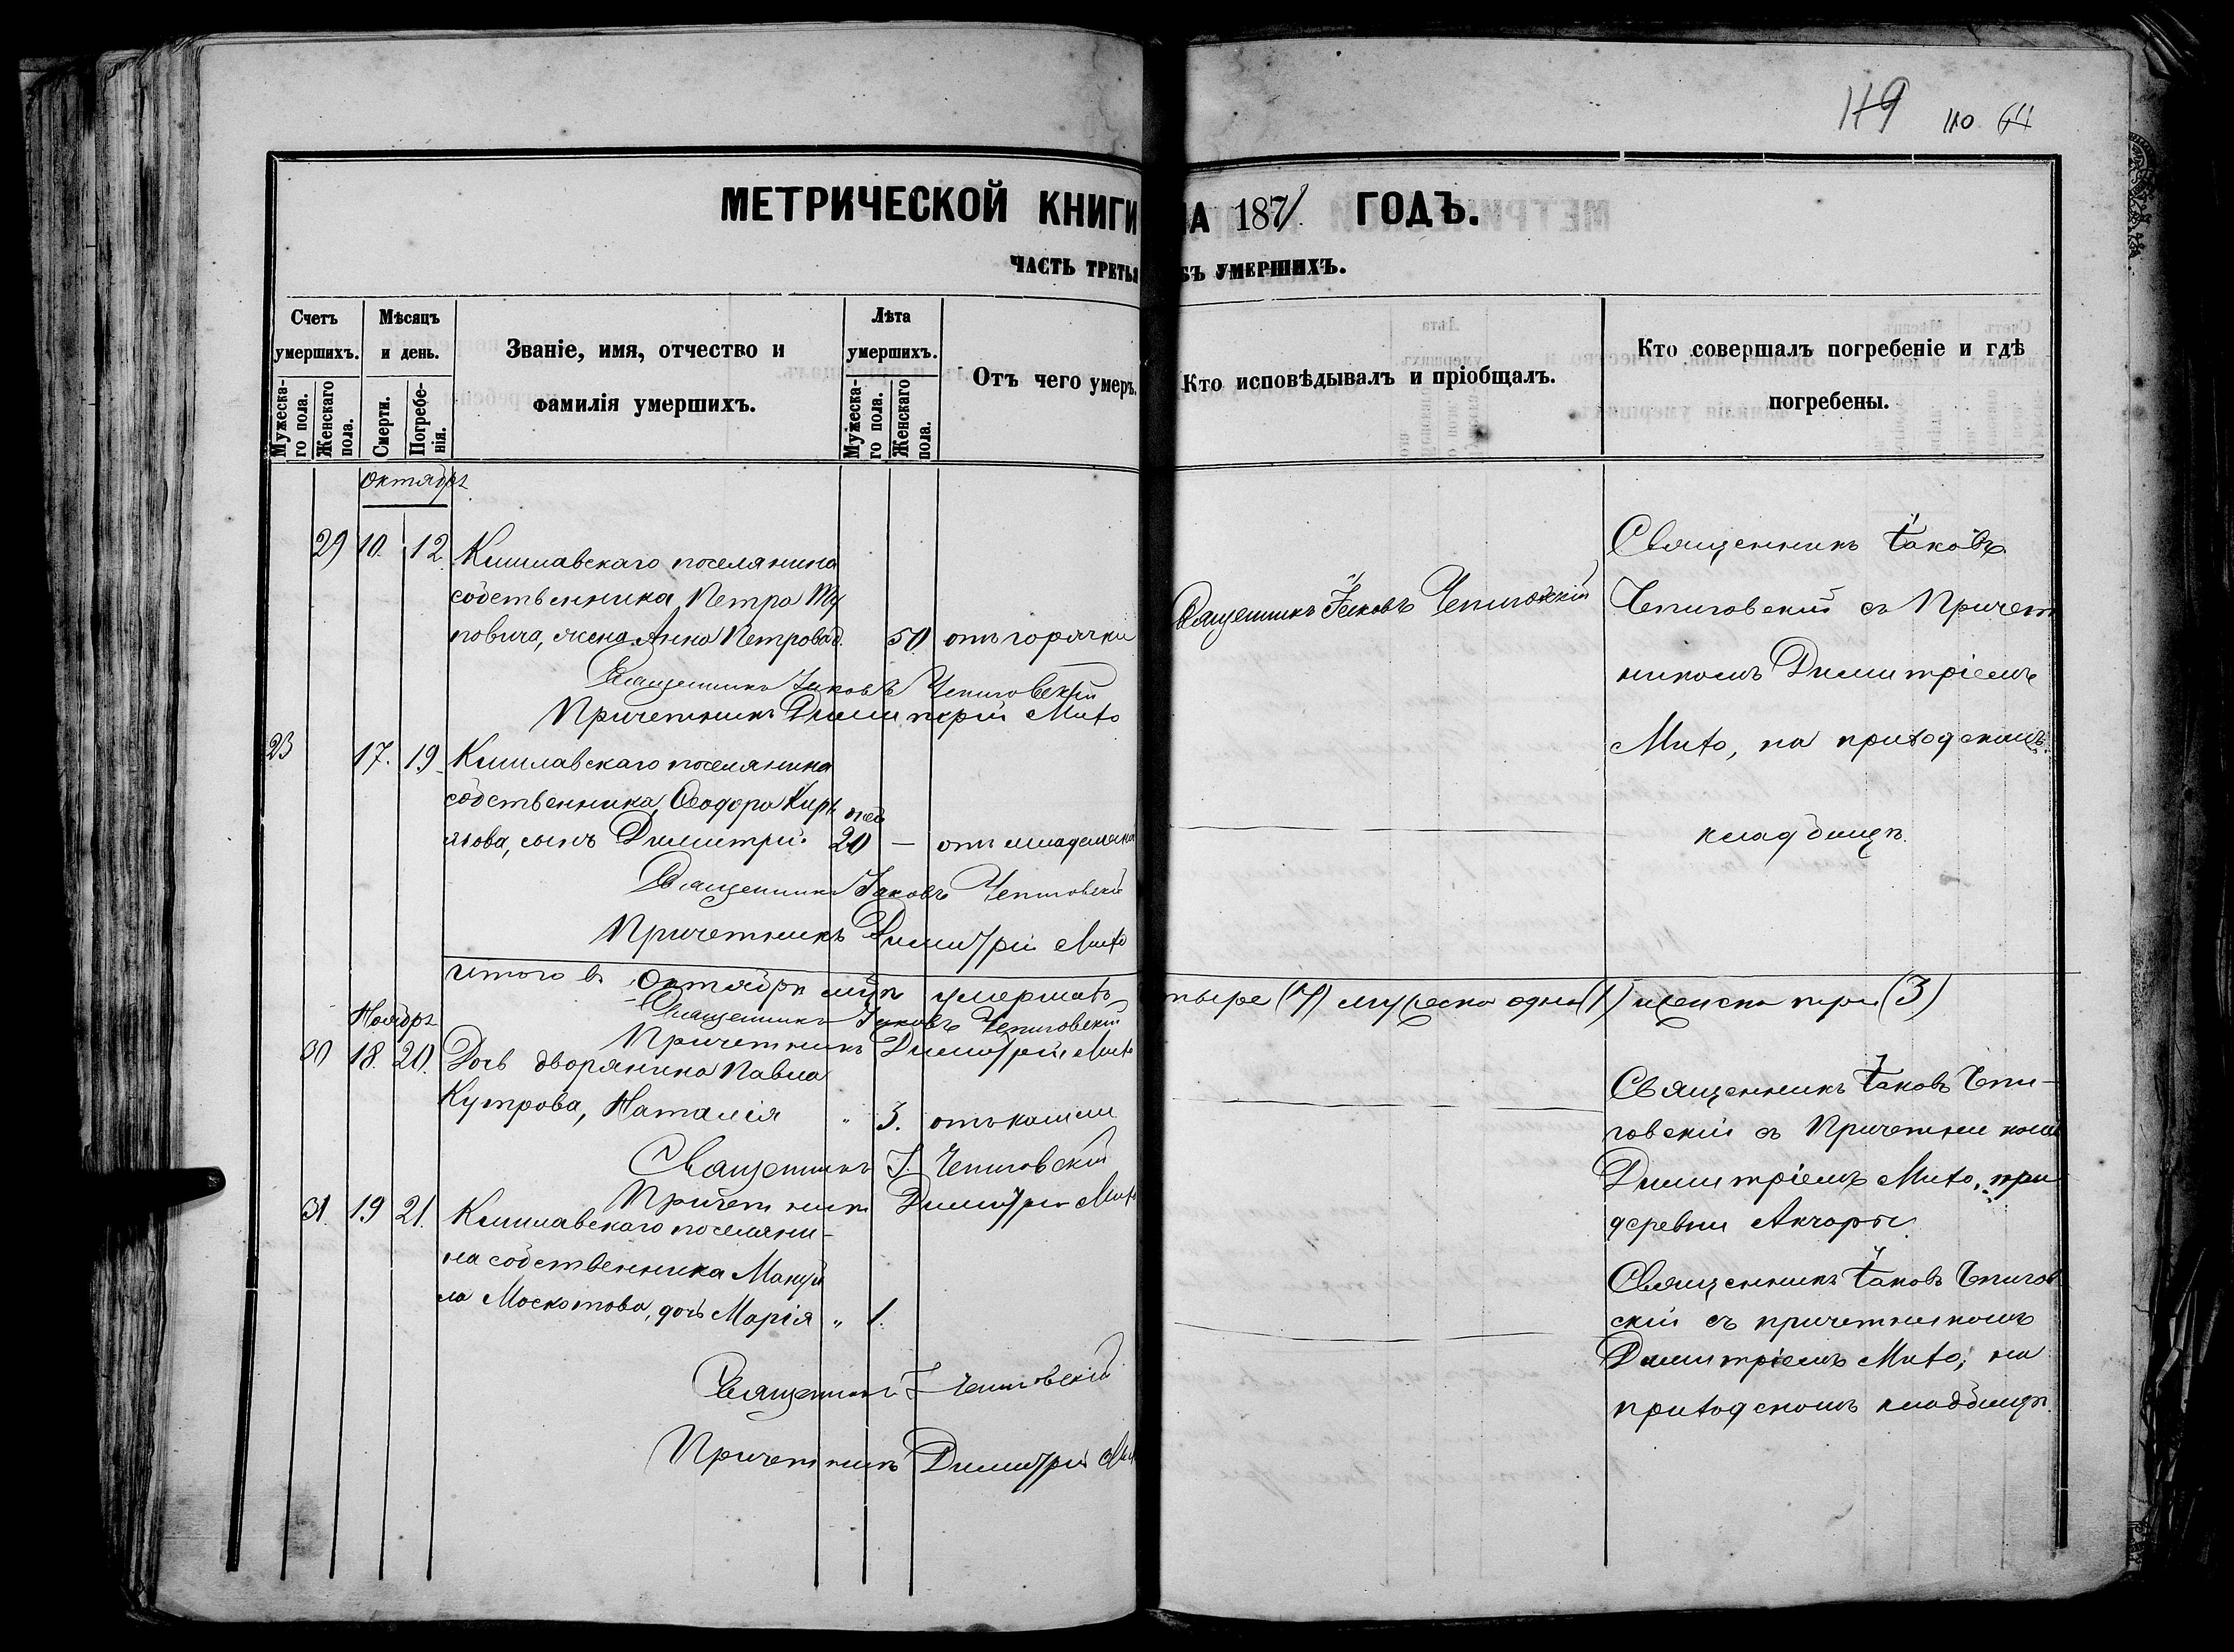 119 110 64
МЕТРИЧЕСКОЙ КНИГИ НА 1871 ГОДЪ.
ЧАСТЬ ТРЕТЬЯ ОБЪ УМЕРШИХЪ.
Счетъ умершихъ.
Мужеска-го пола.
Женскаго пола.
Мѣсяцъ и день.
Смерти.
Погребе-нія.
Званіе, имя, отчество и
фамилія умершихъ.
Лѣта умершихъ.
Мужеска-го пола.
Женскаго пола.
Отъ чего умеръ.
Кто исповѣдывалъ и пріобщалъ.
Кто совершалъ погребеніе и гдѣ
погребены.
Октябрь
29 10. 12. Кишлавскаго поселянина
собственника Петра
повича, жена Анна Петрова д. 50 отъ горячки
Священникъ Іаковъ Чепиговскій
Священникъ Іаковъ
Чепиговскій съ Причет
никомъ Димитріемъ
Мито, на приходскомъ
кладбищѣ.
Священникъ Іаковъ Чепиговскій
Причетникъ Димитрій Мито
23 17. 19. Кишлавскаго поселянина
собственника Ѳеодора Кирь
якова, сынъ Димитрій. 20 — отъ младенска
Священникъ Іаковъ Чепиговскій
Причетникъ Димитрій Мито
Итого въ Октябрѣ м-цѣ умершихъ
тыре (4) мужеска одна (1) женска три (3)
Священникъ Іаковъ Чепиговскій
Причетникъ Димитрій Мито
Ноябрь
30 18. 20. Дочь дворянина Павла
Кутрова, Наталія " 3. отъ кашли
Священникъ І. Чепиговскій
Причетникъ Димитрій Мито
Священникъ Іаковъ Чепи-
говскій съ Причетникомъ
Димитріемъ Мито, при
деревни Акчоры.
31. 19 21. Кишлавскаго поселяни-
на собственника Мануй
ла Москотова, дочь Марія " 1.
Священникъ Іаковъ Чепигов
скій съ причетникомъ
Димитріемъ Мито, на
приходскомъ кладбищѣ.
Священникъ І Чепиговскій
Причетникъ Димитрій